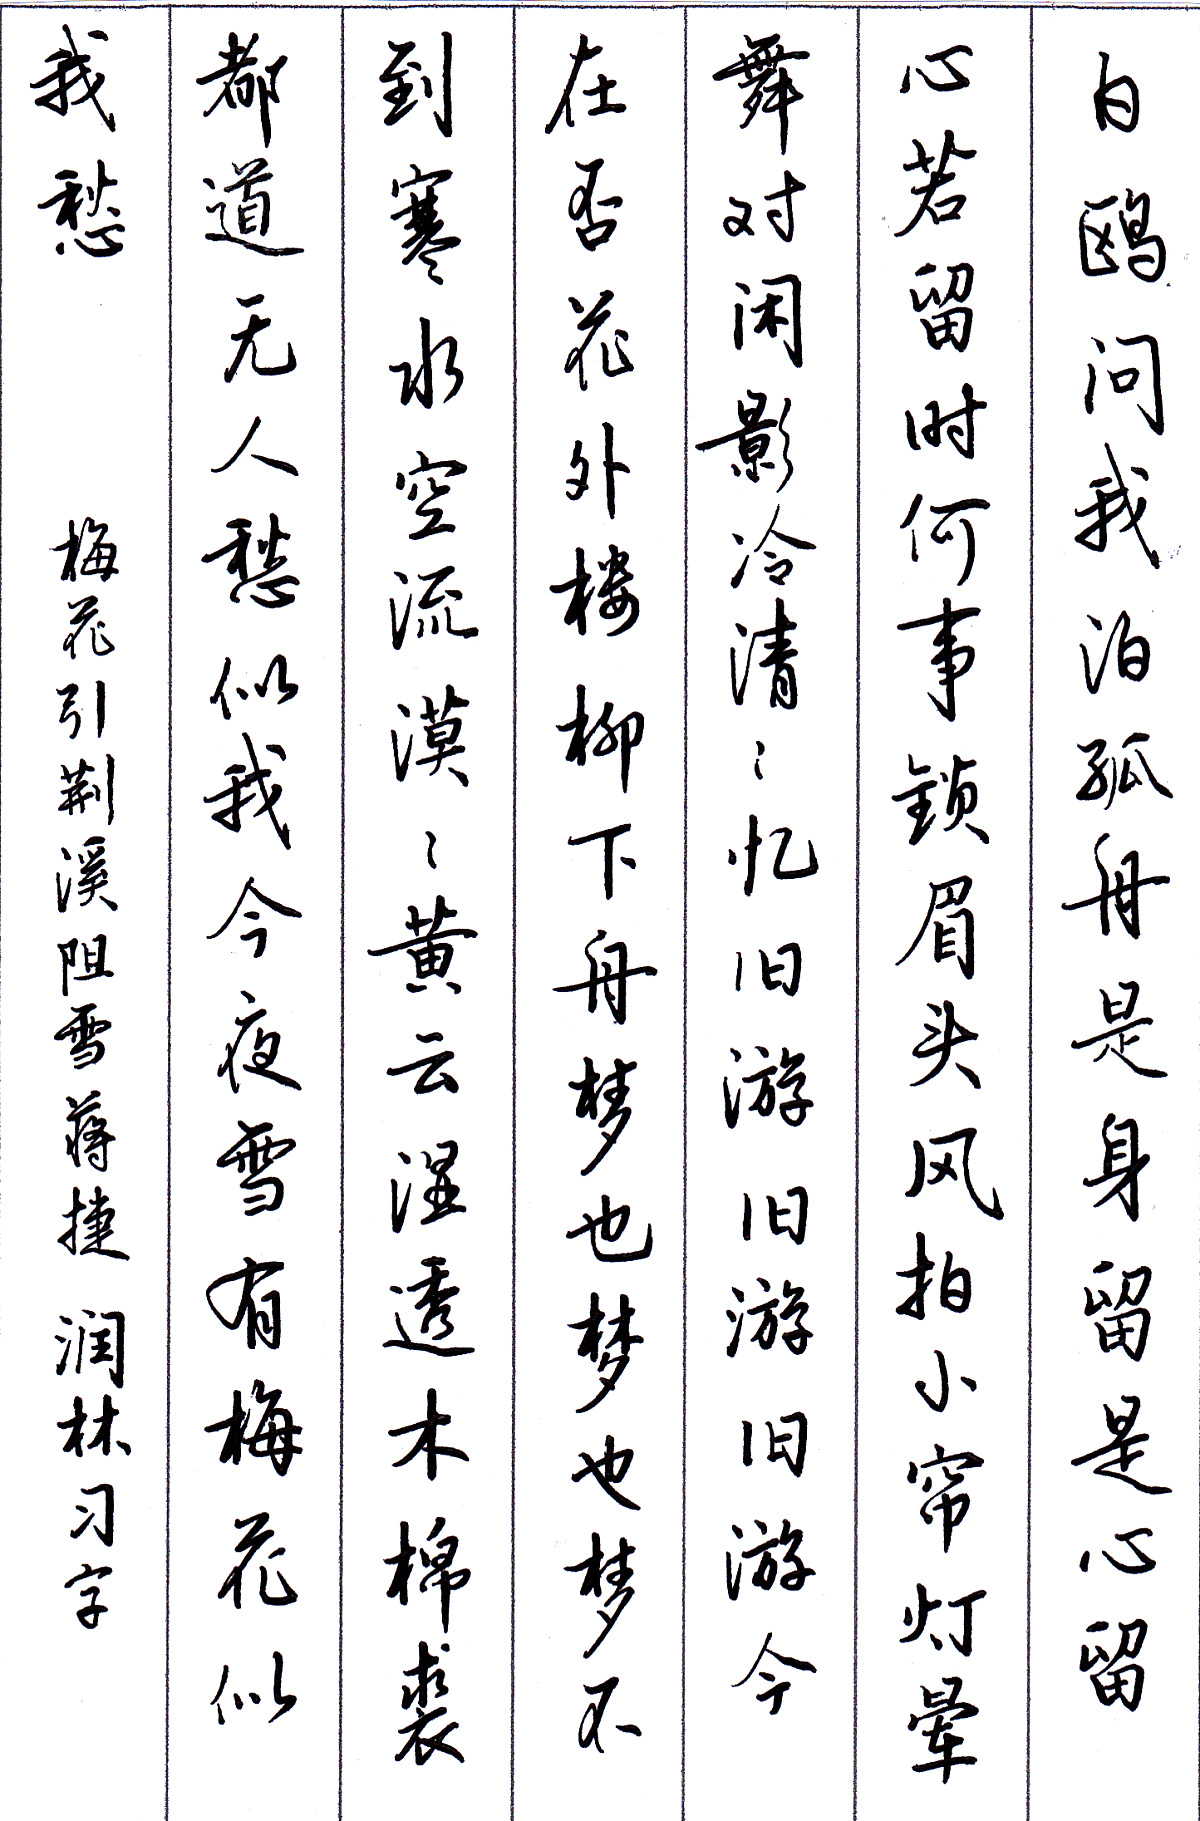 白鸥问我泊孤舟是身留是心留
心若留时何事锁眉头风拍小帘灯晕
舞对闲影冷清〻忆旧游旧游旧游今
在否花外楼柳下舟梦也梦也梦不
到寒水空流漠〻黄云湿透木棉裘
都道无人愁似我今夜雪有梅花似
我愁
梅花引荆溪阻雪蒋捷 润林习字